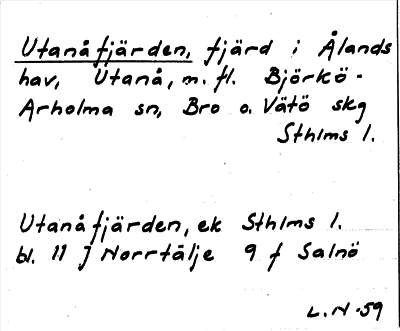 Utanåfjärden, fjärd i Ålands
hav, Utanå, m. fl. Björkö-
Arholma sn, Bro o. Vätö skg
Sthlms l.
Utanåfjärden, ek Sthlms l.
bl. 11 J Norrtälje 9 f Salnö
L.N-59